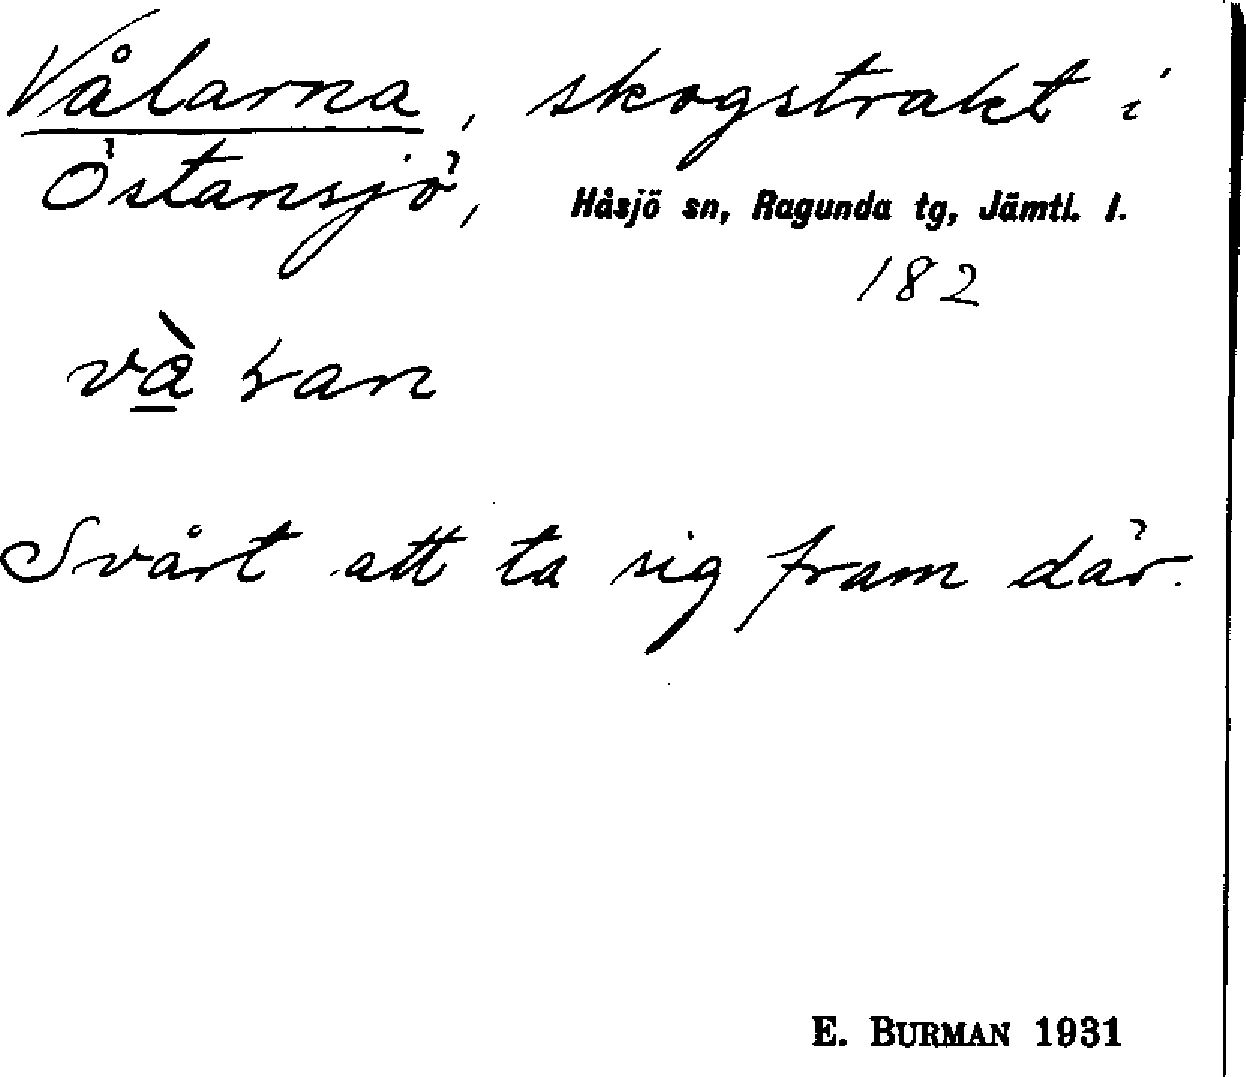 Vålarna, skogstrakt i
Östansjö, Håsjö sn, Ragunda tg, Jämtl. l.
182
Svårt att ta sig fram där.
E. BURMAN 1931